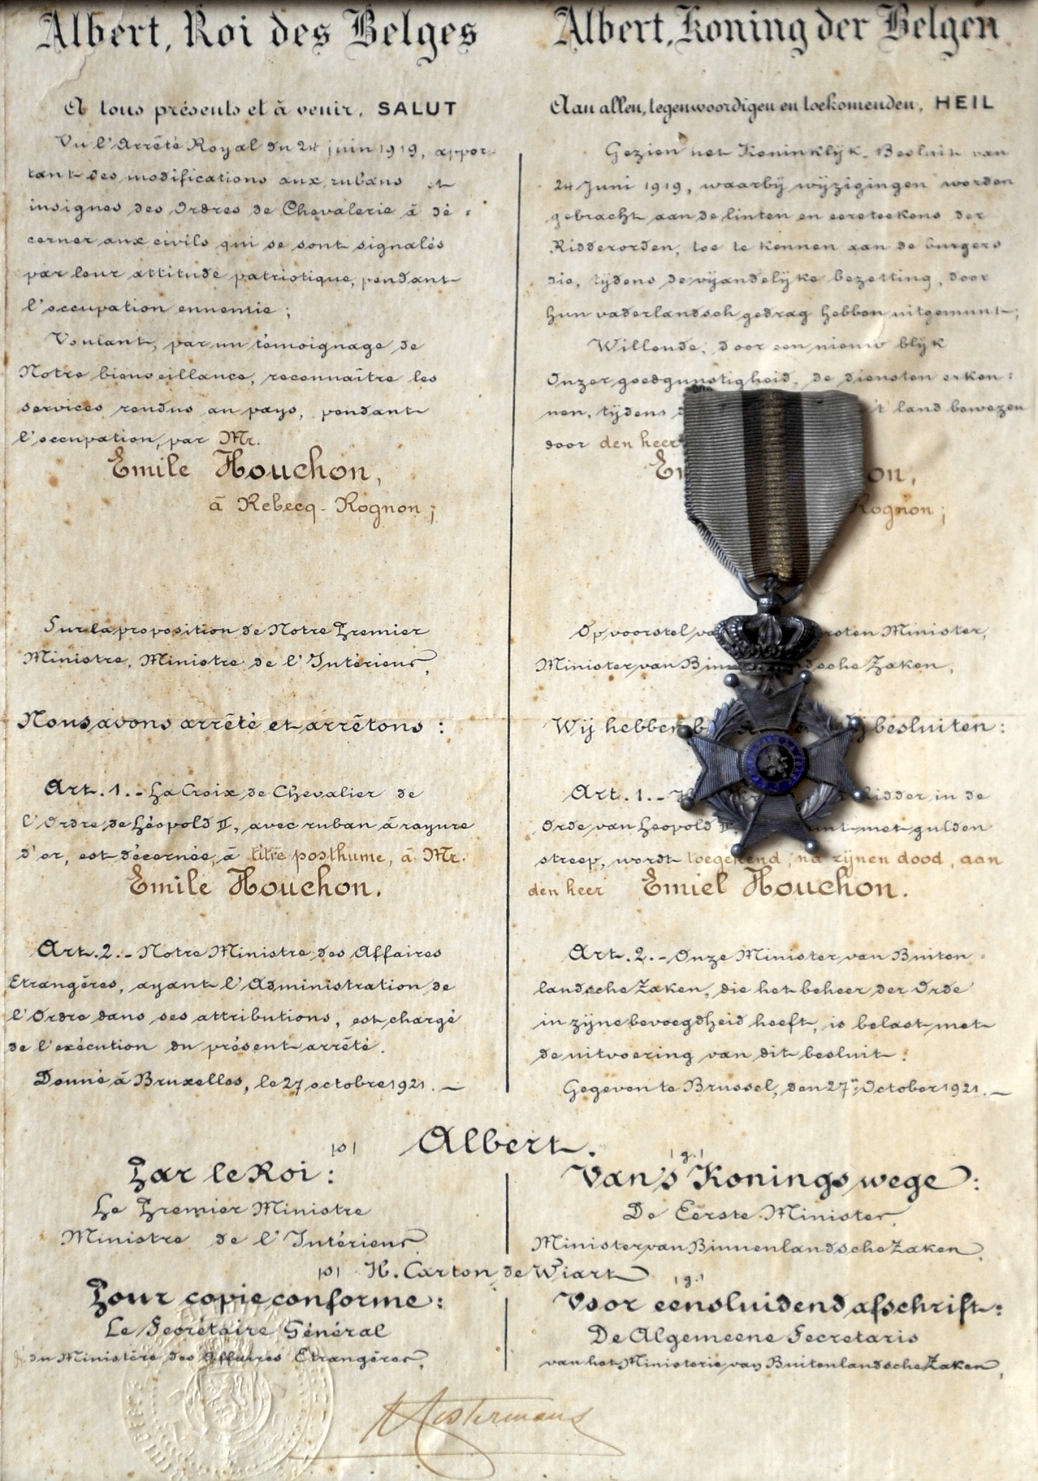 Albert, Roi des Belges
A tous présents et à venir, SALUT
Vu l'Arrêté Royal du 24 juin 1919, appor-
tant des modifications aux rubans et
insignes des Ordres de Chevalerie à dé-
cerner aux civils qui se sont signalés
par leur attitude patriotique, pendant
l'occupation ennemie;
Voulant, par un témoignage de
Notre bienveillance, reconnaître les
services rendus au pays, pendant
l'occupation, par Mr.
Emile Houchon,
à Rebecq-Rognon;
Sur la proposition de Notre Premier
Ministre, Ministre de l'Intérieur,
Nous avons arrêté et arrêtons:
Art. 1.- La Croix de Chevalier de
l'Ordre de Léopold II, avec ruban à rayure
d'or, est décernée, à titre posthume, à Mr.
Emile Houchon.
Art. 2.- Notre Ministre des Affaires
Etrangères, ayant l'Administration de
l'Ordre dans ses attributions, est chargé
de l'exécution du présent arrêté.
Donné à Bruxelles, le 27 octobre 1921.
Albert, Koning der Belgen
Aan allen, tegenwoordigen en toekomenden, HEIL
Gezien het Koninklijk Besluit van
24 Juni 1919, waarbij wijzigingen worden
gebracht aan de linten en eereteekens der
Ridderorden, toe te kennen aan de burgers
die, tijdens de vijandelijke bezetting, door
hun vaderlandsch gedrag hebben uitgemunt;
Willende, door een nieuw blijk
Onzer goedgunstigheid, de diensten erken-
nen, tijdens 't land bewezen
door den heer
Rognon;
Op voorstel Minister,
Minister van Zaken,
Wij hebben besluiten:
Art. 1.- Ridder in de
Orde van Leopold II, met gulden
streep, wordt toegekend, na zijnen dood, aan
den heer Emiel Houchon.
Art. 2.- Onze Minister van Buiten-
landsche Zaken, die het beheer der Orde
in zijne bevoegdheid heeft, is belast met
de uitvoering van dit besluit.
Gegeven te Brussel, den 27n October 1921.
(s) Albert. (g.)
Par le Roi:
Le Premier Ministre
Ministre de l'Intérieur,
Van 's Konings wege:
De Eerste Minister,
Minister van Binnenlandsche Zaken,
(s) H. Carton de Wiart (g.)
Pour copie conforme:
Le Secrétaire Général
du Ministère des Affaires Etrangères,
Voor eensluidend afschrift:
De Algemeene Secretaris
van het Ministerie van Buitenlandsche Zaken,